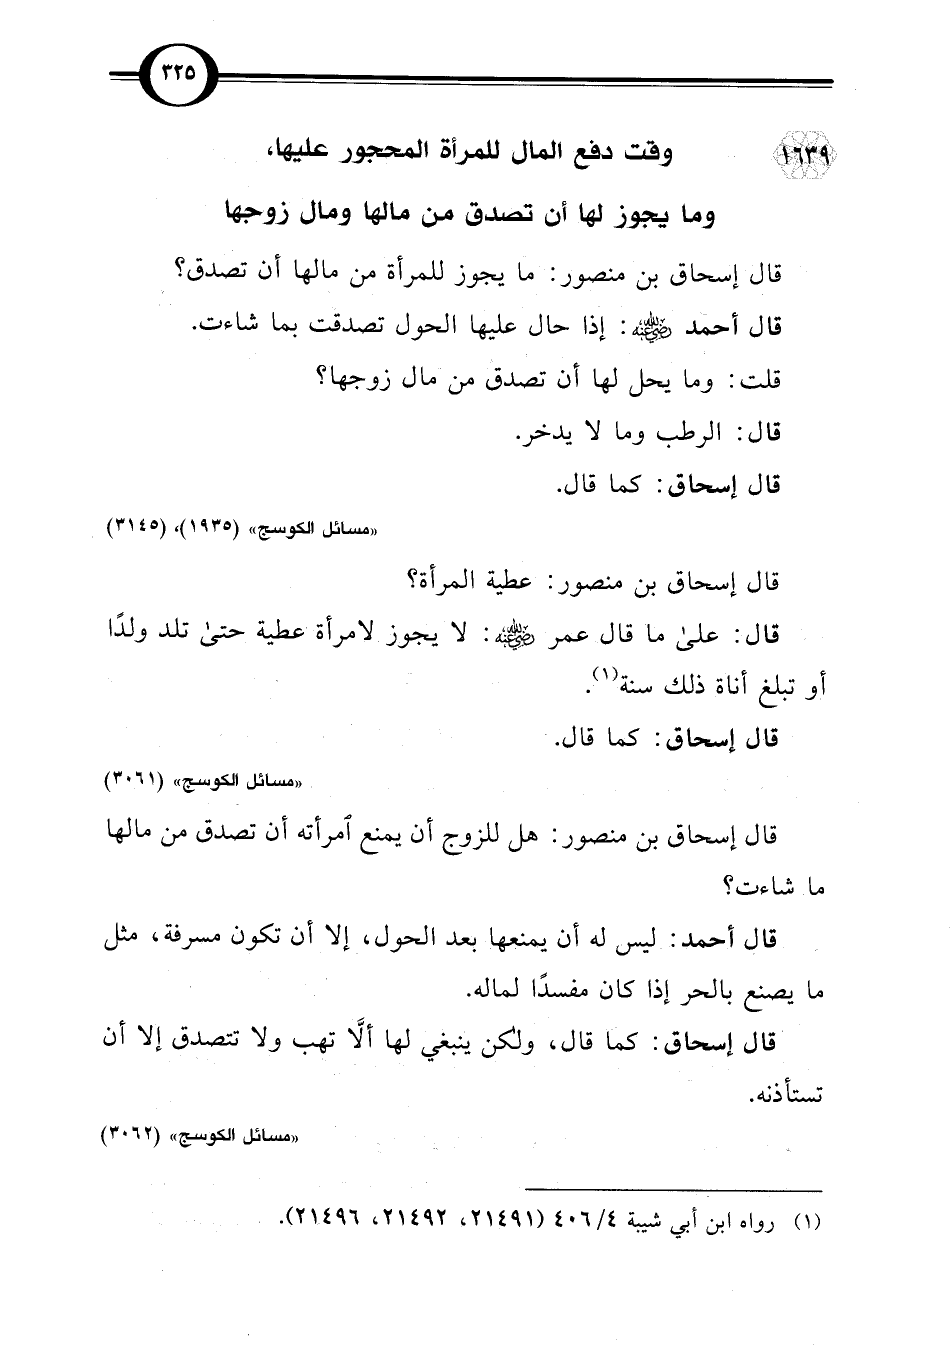 ٣٢٥
١٦٣٩ وقت دفع المال للمرأة المحجور عليها،
وما يجوز لها أن تصدق من مالها ومال زوجها
قال إسحاق بن منصور: ما يجوز للمرأة من مالها أن تصدق؟
قال أحمد رضي الله عنه: إذا حال عليها الحول تصدقت بما شاءت.
قلت: وما يحل لها أن تصدق من مال زوجها؟
قال: الرطب وما لا يدخر.
قال إسحاق: كما قال.
«مسائل الكوسج» (١٩٣٥)، (٣١٤٥)
قال إسحاق بن منصور: عطية المرأة؟
قال: علىٰ ما قال عمر رضي الله عنه: لا يجوز لامرأة عطية حتىٰ تلد ولدًا
أو تبلغ أناة ذلك سنة(١).
قال إسحاق: كما قال.
«مسائل الكوسج» (٣٠٦١)
قال إسحاق بن منصور: هل للزوج أن يمنع ٱمرأته أن تصدق من مالها
ما شاءت؟
قال أحمد: ليس له أن يمنعها بعد الحول، إلا أن تكون مسرفة، مثل
ما يصنع بالحر إذا كان مفسدًا لماله.
قال إسحاق: كما قال، ولكن ينبغي لها ألَّا تهب ولا تتصدق إلا أن
تستأذنه.
«مسائل الكوسج» (٣٠٦٢)
(١) رواه ابن أبي شيبة ٤/ ٤٠٦ (٢١٤٩١، ٢١٤٩٢، ٢١٤٩٦).